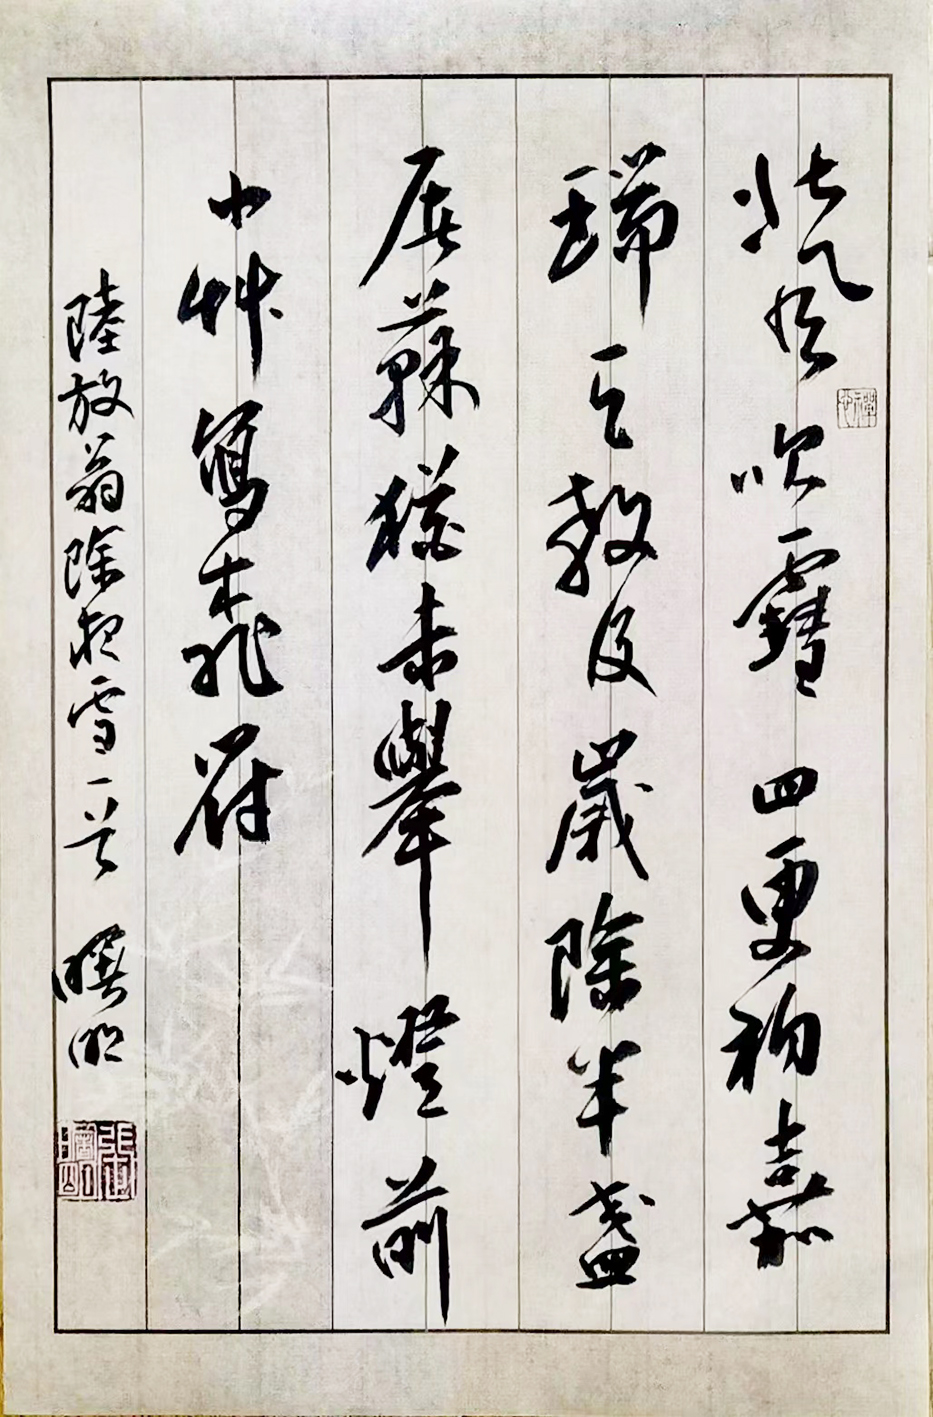 北風吹雪四更初嘉
瑞天教及歲除半盞
屠蘇猶未舉燈前
小艸寫桃符
陸放翁除夜雪一首